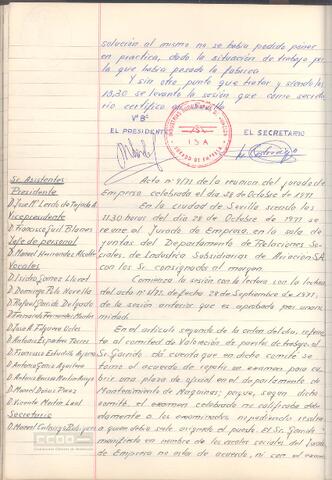 solución al mismo no se había podido poner
en practica, dado la situación de trabajo por
la que había pasado la fabrica
Y sin otro punto que tratar y siendo las
se levanto la sesión que como secreta
rio certifico
Vº Bº
EL PRESIDENTE
EL SECRETARIO
INDUSTRIAS SUBSIDIARIAS DE AVIACION
ISA
JURADO DE EMPRESA
Sr. Asistentes
Presidente
D. José Mª Lerdo de Tejada
Vicepresidente
D. Francisco Guil Blanes
Jefe de personal
D. Manuel Hernandez Alcalde
Vocales
D. Isidro Gomez Llorente
D. Domingo Polo Novella
D. Rafael Garrido Delgado
D. Fernando Fernandez
D. José A. Figueroa
D. Antonio Espartero Torres
D. Francisco
D. Antonio Garcia
D. Antonio
D. Manuel
D. Vicente Martin Leal
Secretario
D. Manuel
Acta nº 9/71 de la reunion del Jurado de
Empresa celebrada el dia 28 de Octubre de 1971
En la ciudad de Sevilla siendo las
11'30 horas del dia 28 de Octubre de 1971 se
reune el Jurado de Empresa, en la sala de
juntas del Departamento de Relaciones Socia
les, de Industrias Subsidiarias de Aviacion S.A.
con los Sr. consignados al margen.
Comienza la sesión con la lectura
del acta nº 8/71. de fecha 28 de Septiembre de 1971,
de la sesion anterior que es aprobada por una
midad.
En el articulo segundo de la orden del dia, referen
te al comité de Valoración de puestos de trabajo el
Sr. Garrido da cuenta que en dicho comite se
tomo el acuerdo de repetir un examen para cu
brir una plaza de oficial en el departamento de
Mantenimiento de Maquinas; porque, según dicho
comité el examen celebrado no calificaba debi
damente a los examinados impidiendo resolver
a quien debia serle asignado el puesto. El Sr. Garrido
manifiesta en nombre de los vocales sociales del Jurado
de Empresa no estar de acuerdo, ni con el examen
ccoo